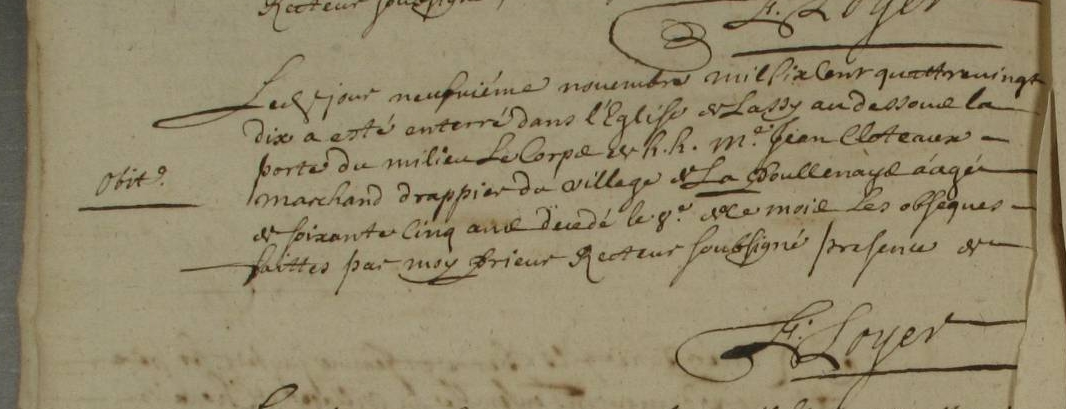 Recteur soubsigné
F. Loyer
Le jour neufviéme novembre mil six cent quattrevingt
dix a esté enterré dans l'Eglise de Lassy au dessous la
porte du milieu Le Corps de h. h. Me. Jean Cloteaux
Obit.
marchand drappier du village de La Boullenaye áagé
de soixante Cinq ans décédé le 8e. de ce mois Les obseques
faittes par moy prieur Recteur soubsigné presence de
F. Loyer